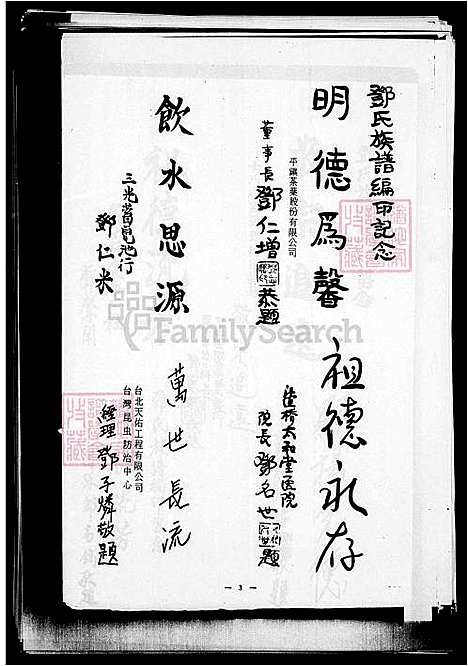 鄧氏族譜編印記念
明德爲馨
平鎮茶葉股份有限公司
董事長鄧仁增
恭題
祖德永存
太和堂医院
院長鄧名世
題
飲水思源
三光蓄電池行
鄧仁米
萬世長流
台北天佑工程有限公司
台灣昆虫防治中心
經理鄧子燐敬題
— 3 —
FamilySearch